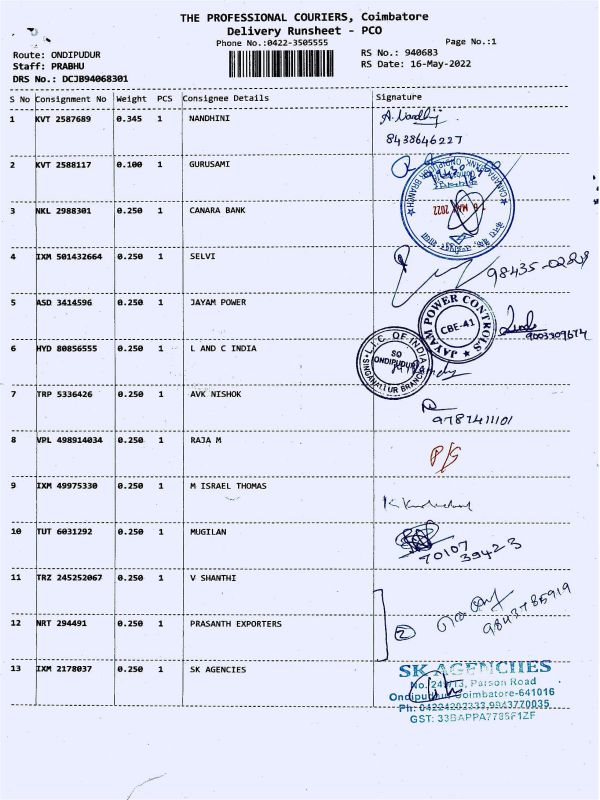 THE PROFESSIONAL COURIERS, Coimbatore
Delivery Runsheet - PCO
Phone No.:0422-3505555
Page No.:1
Route: ONDIPUDUR
Staff: PRABHU
DRS No.: DCJB94068301
RS No.: 940683
RS Date: 16-May-2022
S No Consignment No Weight PCS Consignee Details Signature
1 KVT 2587689 0.345 1 NANDHINI
8438646227
2 KVT 2588117 0.100 1 GURUSAMI
CANARA BANK, ONDIPUDUR BRANCH
MAY 2022
3 NKL 2988301 0.250 1 CANARA BANK
4 IXM 501432664 0.250 1 SELVI
5 ASD 3414596 0.250 1 JAYAM POWER
JAYAM POWER CONTROLS
CBE-41
9003309674
6 HYD 80856555 0.250 1 L AND C INDIA
L.I.C. OF INDIA
SO
ONDIPUDUR
SINGANALLUR BRANCH
7 TRP 5336426 0.250 1 AVK NISHOK
9787411101
8 VPL 498914034 0.250 1 RAJA M
P/G
9 IXM 49975330 0.250 1 M ISRAEL THOMAS
10 TUT 6031292 0.250 1 MUGILAN
70107
39423
11 TRZ 245252067 0.250 1 V SHANTHI
9843785919
12 NRT 294491 0.250 1 PRASANTH EXPORTERS
2
13 IXM 2178037 0.250 1 SK AGENCIES
SK AGENCIIES
Road
Coimbatore-641016